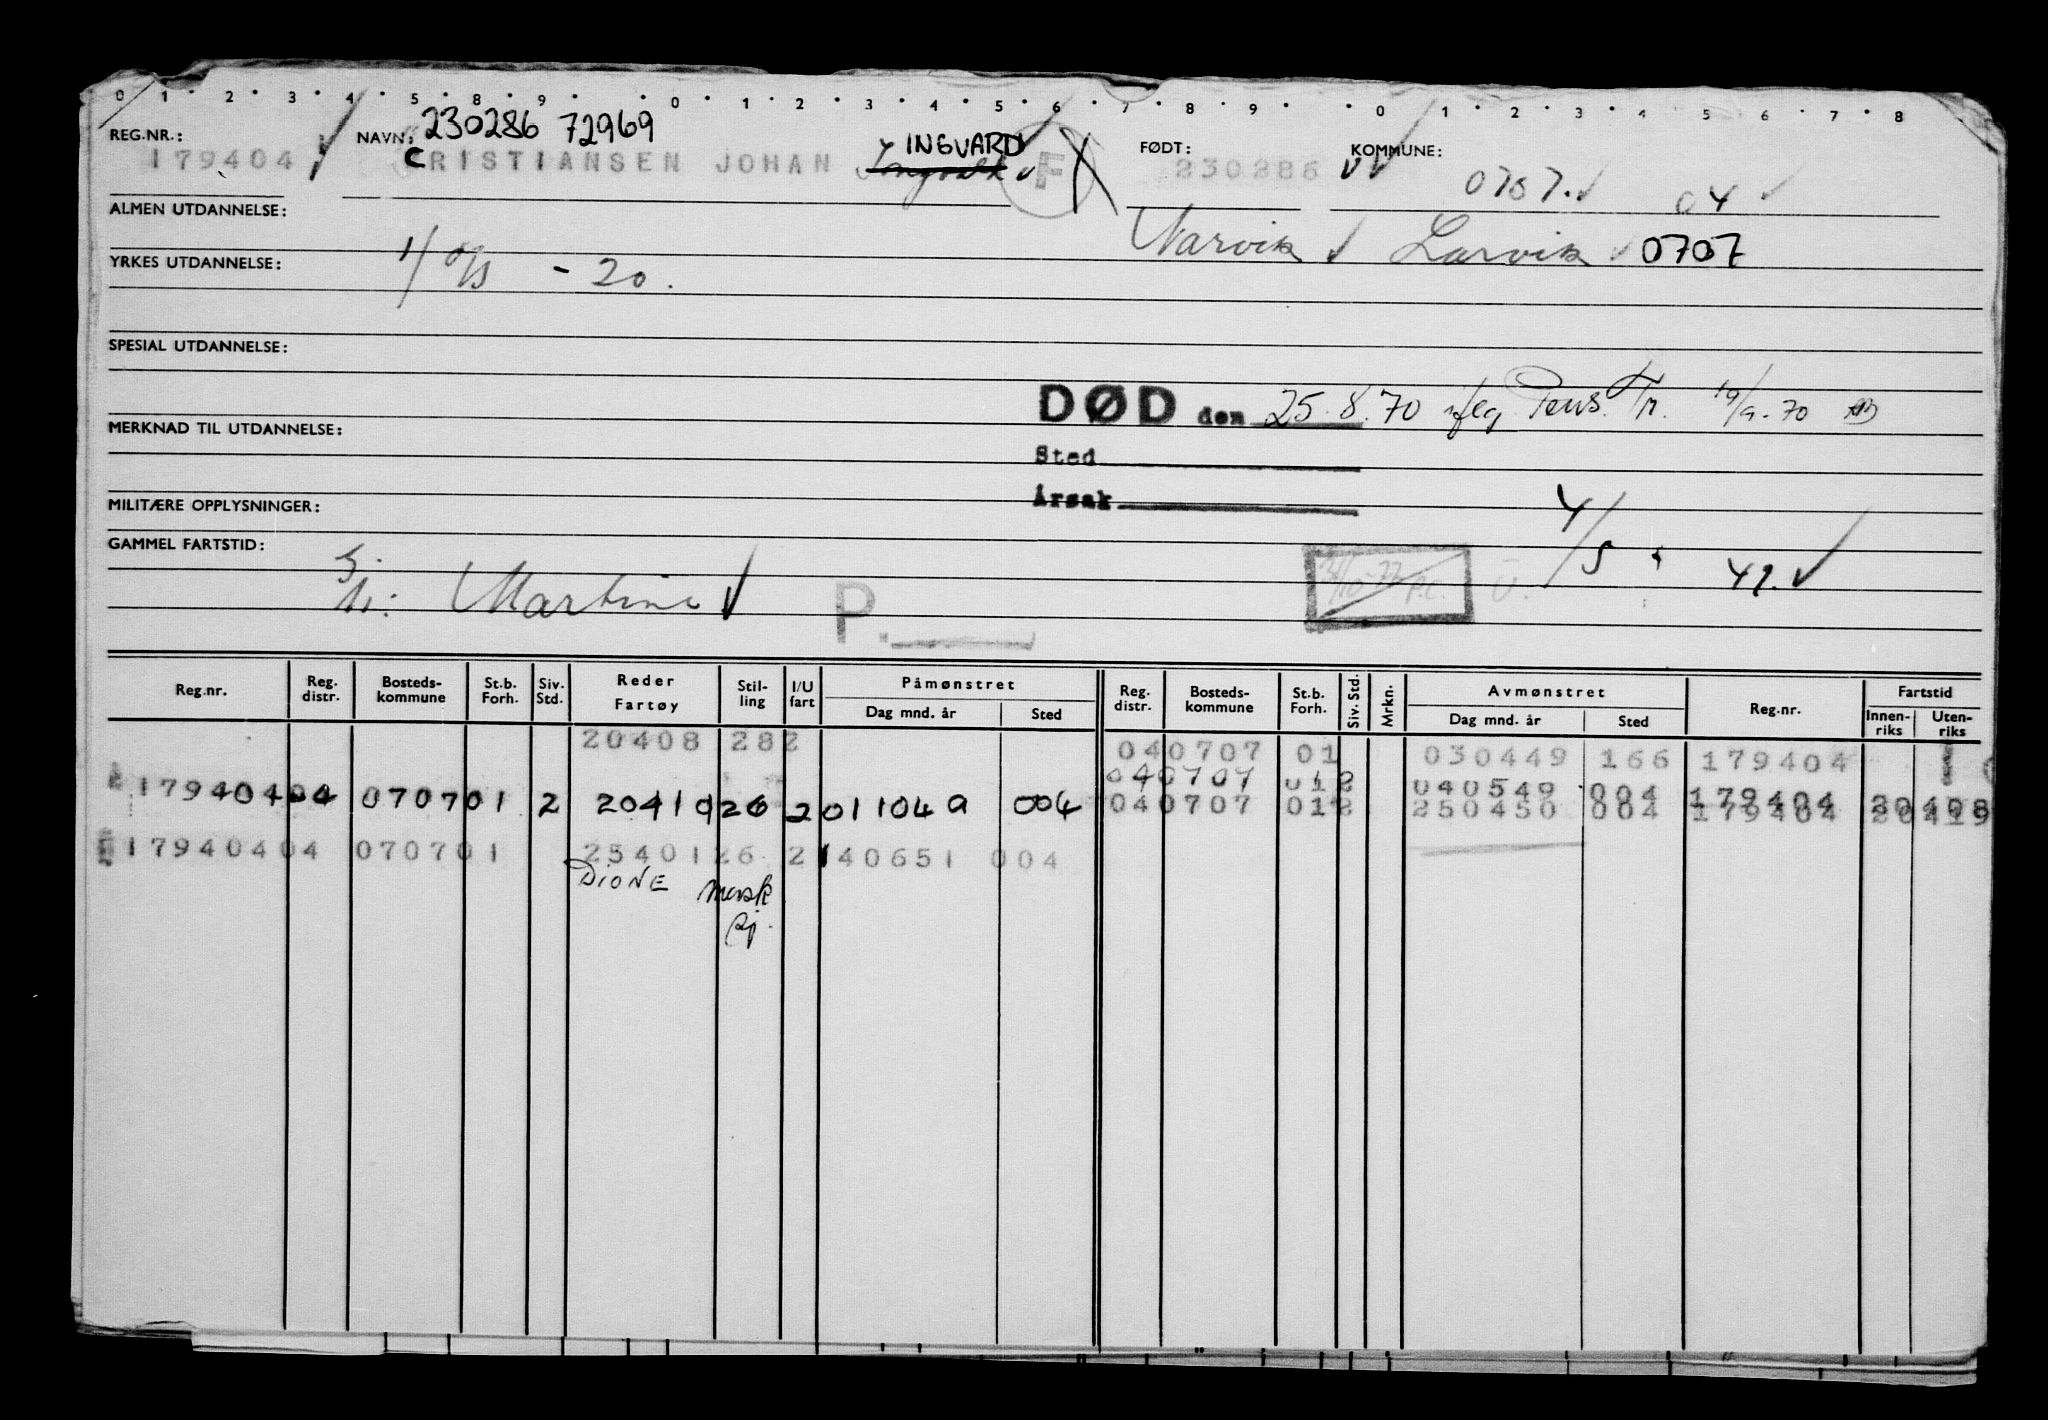 0 1 2 3 4 5 8 9 0 1 2 3 4 5 6 7 8 9 0 1 2 3 4 5 6 7 8
REG.NR.: NAVN: 230286 72969 INGVARD FØDT: KOMMUNE:
179404 CRISTIANSEN JOHAN F 230286 0707. 04
ALMEN UTDANNELSE: Narvik Larvik 0707
YRKES UTDANNELSE: - 20.
SPESIAL UTDANNELSE:
DØD den 25.8.70 ifLg Pens. Tr. 19/9-70
MERKNAD TIL UTDANNELSE:
Sted
MILITÆRE OPPLYSNINGER: Årsak
GAMMEL FARTSTID: 4/5 - 49.
G.
M: Martine P.
Reg.nr. Reg. distr. Bosteds-kommune St.b. Forh. Siv. Std. Reder Fartøy Stil-ling I/U fart Påmønstret Dag mnd. år Sted Reg. distr. Bosteds-kommune St.b. Forh. Siv. Std. Mrkn. Avmønstret Dag mnd. år Sted Reg.nr. Fartstid Innen-riks Uten-riks
20408 282 040707 01 030449 166 179404
040707 012 040549 004 179404 20408
179404 04 0707 01 2 20419 26 2 011049 004 040707 012 250450 004 179404 20419
179404 04 0707 01 25401 26 2 140651 004
DIONE mask